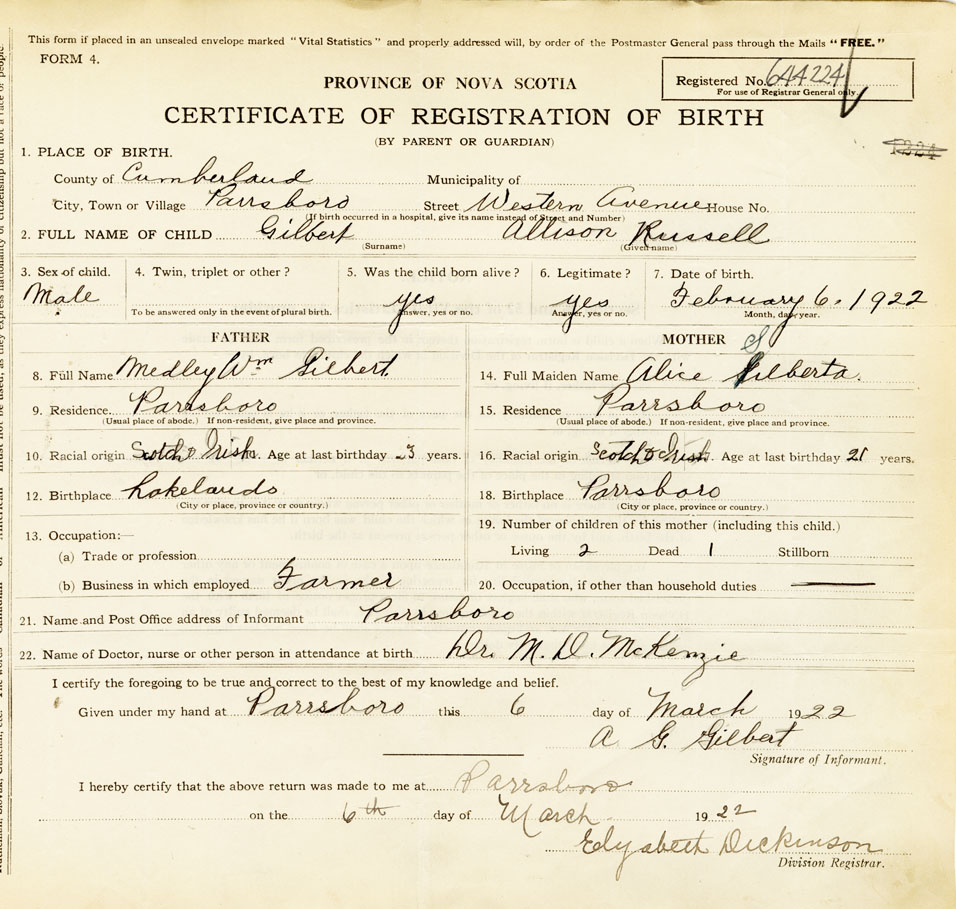 This form if placed in an unsealed envelope marked "Vital Statistics" and properly addressed will, by order of the Postmaster General pass through the Mails "FREE."
FORM 4.
PROVINCE OF NOVA SCOTIA
Registered No. 644224
For use of Registrar General only.
CERTIFICATE OF REGISTRATION OF BIRTH
(BY PARENT OR GUARDIAN)
1. PLACE OF BIRTH.
County of Cumberland Municipality of
City, Town or Village Parrsboro Street Western Avenue House No.
(If birth occurred in a hospital, give its name instead of Street and Number)
2. FULL NAME OF CHILD Gilbert Allison Russell
(Surname) (Given name)
3. Sex of child. 4. Twin, triplet or other? 5. Was the child born alive? 6. Legitimate? 7. Date of birth.
Male yes yes February 6. 1922
To be answered only in the event of plural birth. Answer, yes or no. Answer, yes or no. Month, day, year.
FATHER MOTHER
8. Full Name Medley Wm Gilbert 14. Full Maiden Name Alice Gilberta.
9. Residence. Parrsboro 15. Residence Parrsboro
(Usual place of abode.) If non-resident, give place and province. (Usual place of abode.) If non-resident, give place and province.
10. Racial origin Scotch & Irish. Age at last birthday 23 years. 16. Racial origin Scotch & Irish. Age at last birthday 21 years.
12. Birthplace Lakelands 18. Birthplace Parrsboro
(City or place, province or country.) (City or place, province or country.)
19. Number of children of this mother (including this child.)
13. Occupation:—
(a) Trade or profession Living 2 Dead 1 Stillborn
(b) Business in which employed Farmer 20. Occupation, if other than household duties
21. Name and Post Office address of Informant Parrsboro
22. Name of Doctor, nurse or other person in attendance at birth Dr. M. D. McKenzie
I certify the foregoing to be true and correct to the best of my knowledge and belief.
Given under my hand at Parrsboro this 6 day of March 1922
A. G. Gilbert
Signature of Informant.
I hereby certify that the above return was made to me at Parrsboro
on the 6th day of March 1922
Elyzabeth Dickinson
Division Registrar.